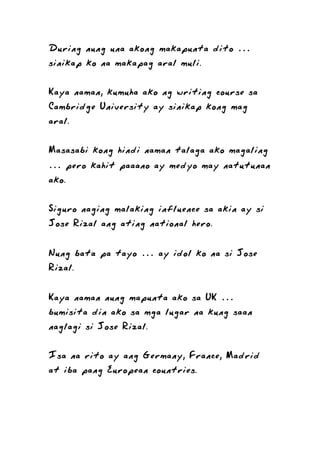 During nung una akong makapunta dito ...
sinikap ko na makapag aral muli.
Kaya naman, kumuha ako ng writing course sa
Cambridge University ay sinikap kong mag
aral.
Masasabi kong hindi naman talaga ako magaling
... pero kahit paaano ay medyo may natutunan
ako.
Siguro naging malaking influence sa akin ay si
Jose Rizal ang ating national hero.
Nung bata pa tayo ... ay idol ko na si Jose
Rizal.
Kaya naman nung mapunta ako sa UK ...
bumisita din ako sa mga lugar na kung saan
naglagi si Jose Rizal.
Isa na rito ay ang Germany, France, Madrid
at iba pang European countries.